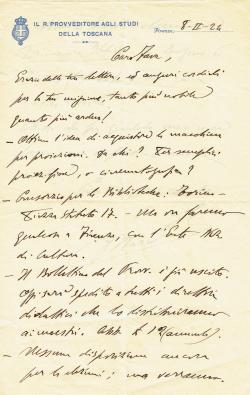 IL R. PROVVEDITORE AGLI STUDI
DELLA TOSCANA
Firenze, 8-II-24
Caro Fava,
della tua lettera, ed auguri cordiali
per la tua migrazione, tanto più nobile
quanto più ardua!
- Ottima l'idea di acquistare la macchina
per proiezioni. Da chi? Per semplici
proiezioni, o cinematografia?
- Consorzio per le Biblioteche: Torino -
17. - Ma
a Firenze, con l'Ente Naz.
di Cultura.
- Il Bollettino del Provv. è già uscito.
spedito a tutti i direttori
didattici che lo distribuiranno
ai maestri. L 12 (annuale).
- Nessuna disposizione ancora
per le ; ma verranno.